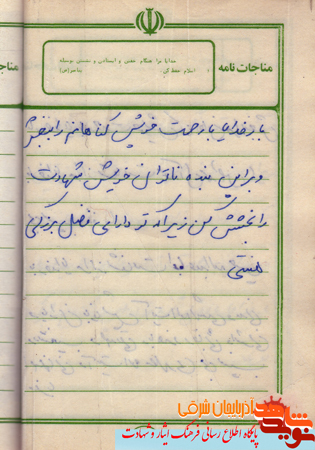 مناجات نامه
خدایا مرا هنگام خفتن و ایستادن و نشستن بوسیله
اسلام حفظ کن. پیامبر(ص)
بار خدایا با رحمت خویش گناهانم را ببخش
و بر این بنده ناتوان خویش شهادت
را بخشش کن زیرا که تو دارای فضل بزرگی
هستی
آذربایجان شرقی
نوید شاهد
پایگاه اطلاع رسانی فرهنگ ایثار و شهادت